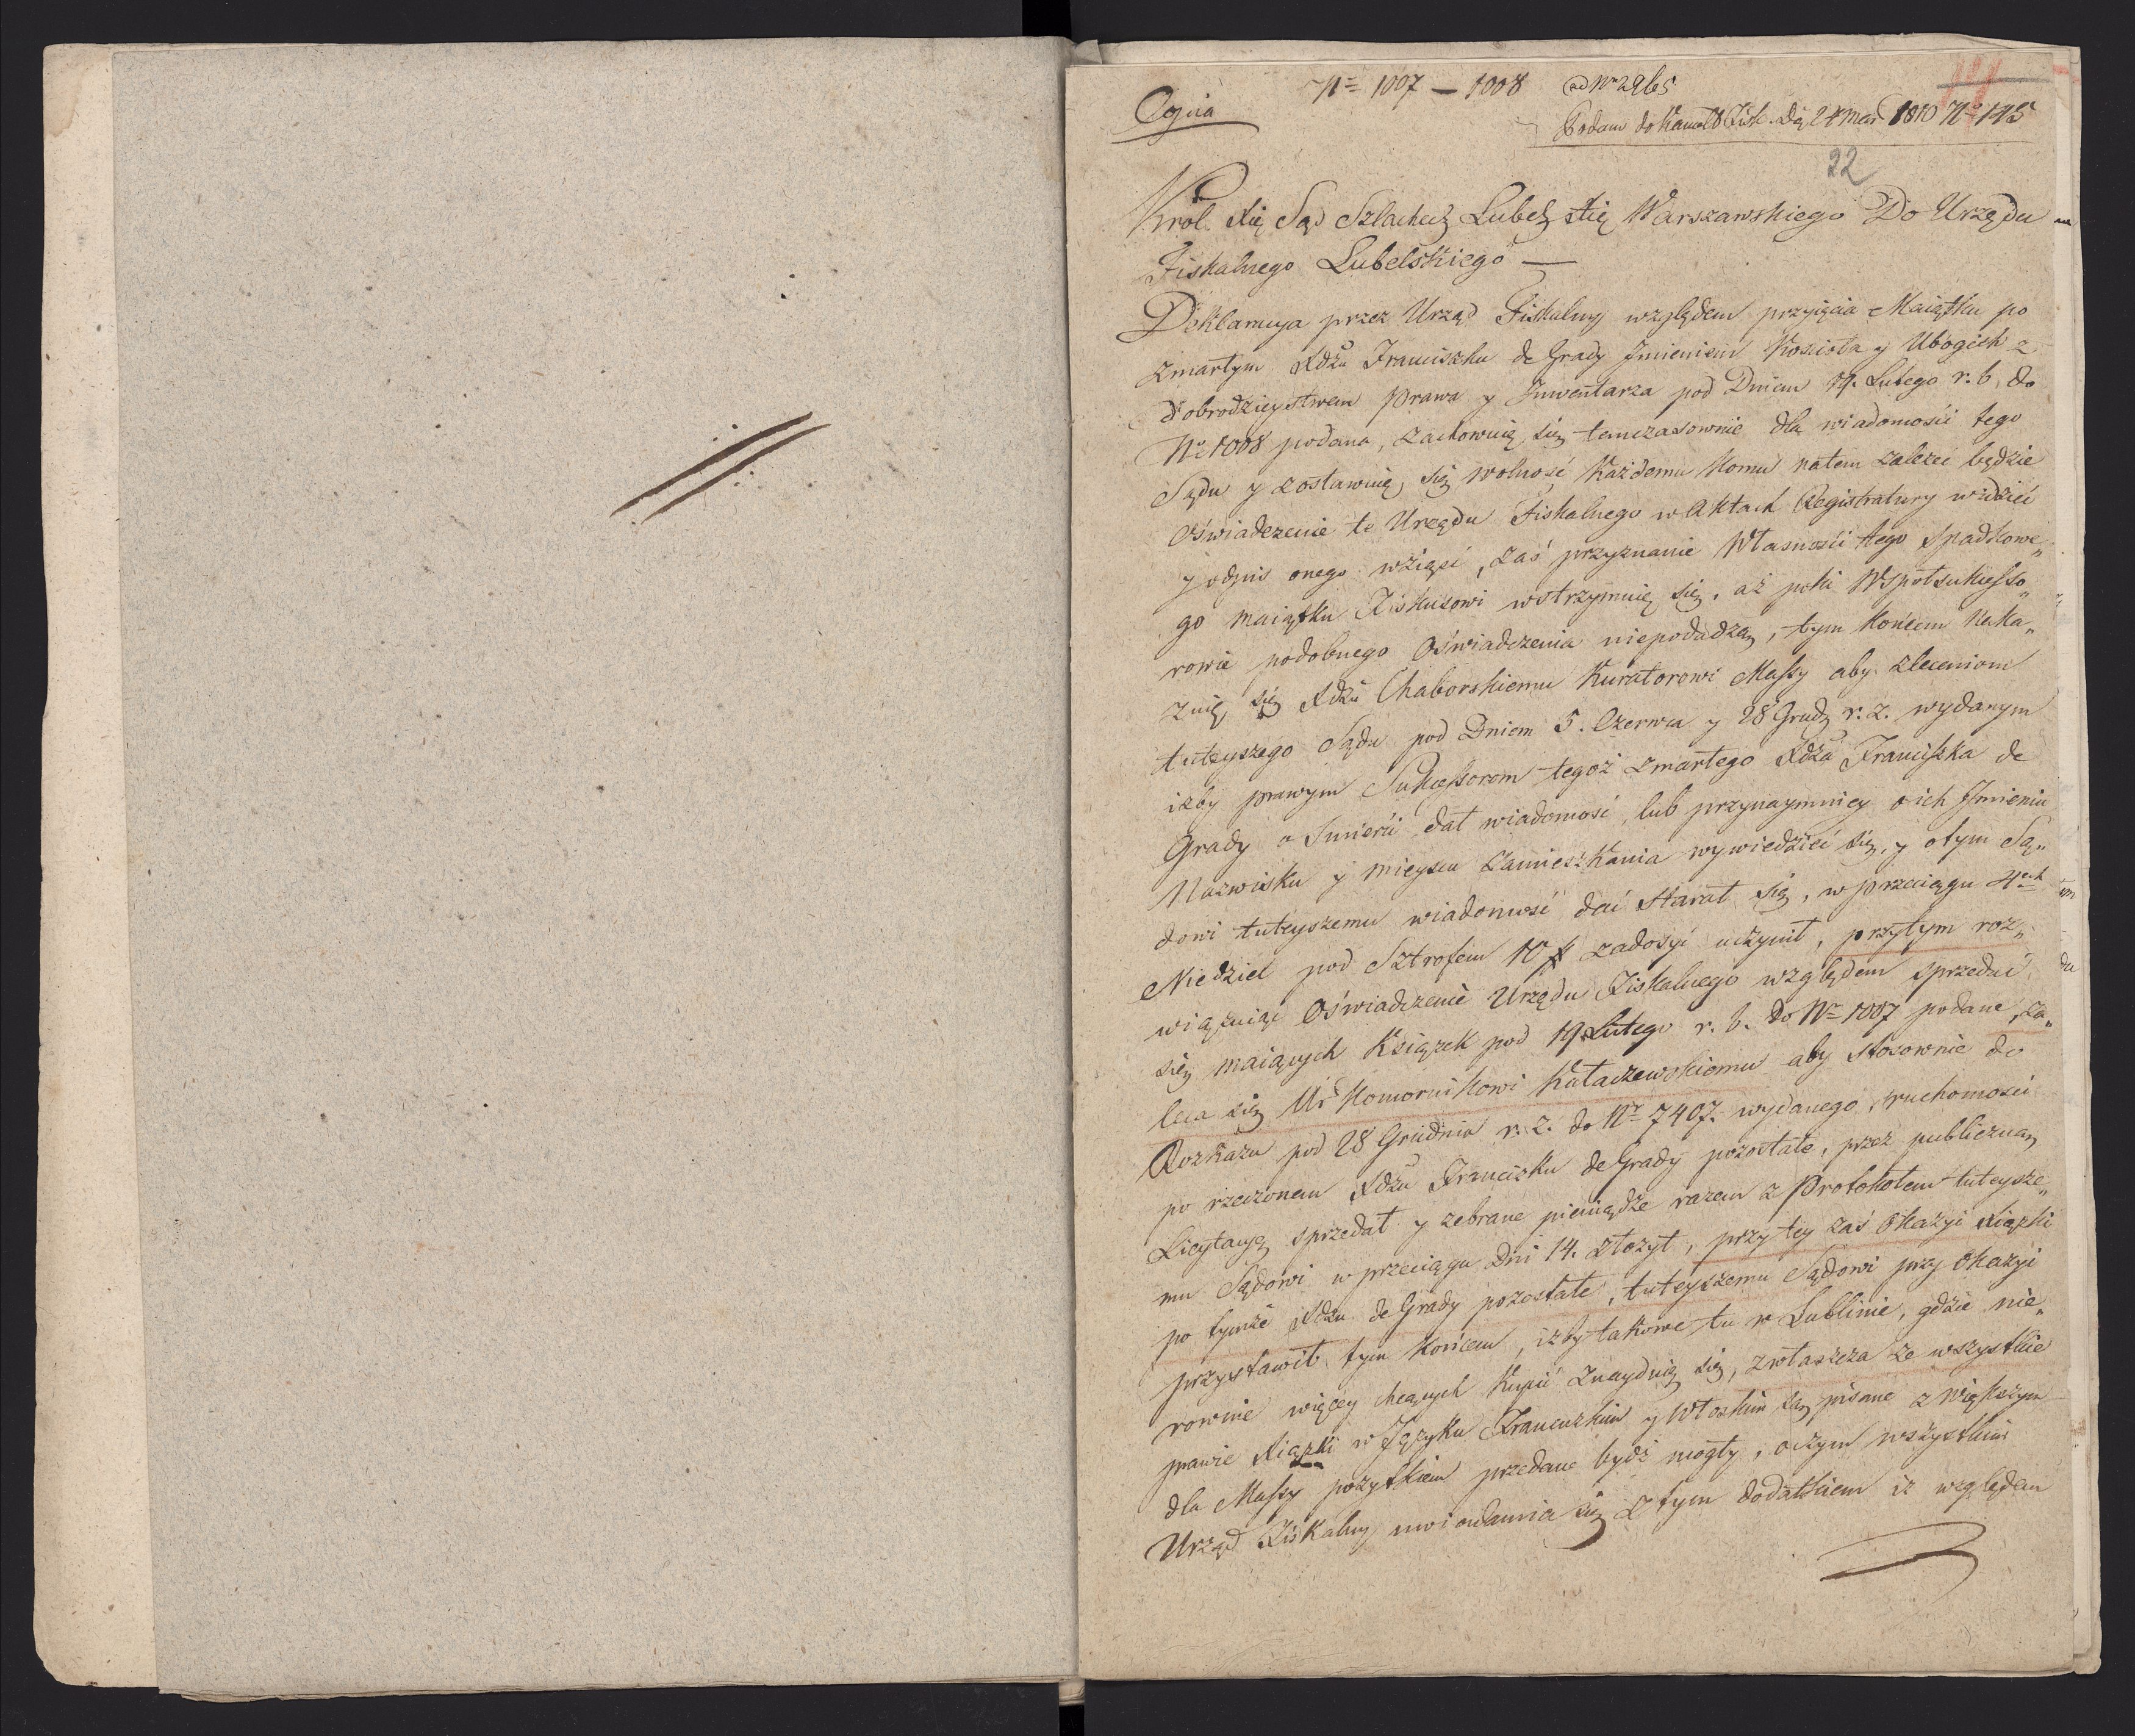 Copia
Nº 1007 — 1008 ad Nr 2965
Podan do Kanc. Fisk. D. 24 Mar. 1810 Nº 145
22
Król. Xię Sąd Szlachec. Lubel. Xię Warszawskiego Do Urzędu
Fiskalnego Lubelskiego —
Deklaracya przez Urząd Fiskalny względem przyięcia Maiątku po
zmarłym Xdzu Franciszku de Grady Jmieniem Koscioła y Ubogich z
dobrodzieystwem Prawa y Inwentarza pod Dniem 19. Lutego r. b. do
Nº 1008 podana, zachowuię się temczasownie dla wiadomości tego
Sądu y zostawuię się wolność Każdemu Komu natem zależeć będzie
Oświadczenie te Urzędu Fiskalnego w Aktach Registratury widzieć
y odpis onego wziąść, zaś przyznanie Własności tego Spadkowe„
go maiątku Fiskusowi wstrzymuię się, aż poki Wspołsukcesso„
rowie podobnego Oświadczenia niepodadzą, tym końcem Naka„
zuię się Xdzu Chaborskiemu Kuratorowi Massy aby zleceniom
tuteyszego Sądu pod Dniem 5. Czerwca y 28 Grud. r. z. wydanym
iżby prawym Sukcessorom tegoż zmarłego Xdza Franciszka de
Grady o Smierci dał wiadomość, lub przynaymniey o ich Jmieniu
Nazwisku y mieyscu zamieszkania wywiedzieć się, y otym Są„
dowi tuteyszemu wiadomość dać starał się, w przeciągu 4ech
Niedziel pod Sztrofem 10 # zadosyć uczynił, przytym roz„
wiązuiąc Oświadczenie Urzędu Fiskalnego względem sprzedać
się maiących Książek pod 19 Lutego r. b. do Nr 1007 podane, za„
leca się Ur Komornikowi Kataczewskiemu aby stosownie do
Rozkazu pod 28 Grudnia r. z. do Nr 7407. wydanego, ruchomości
po rzeczonem Xdzu Franciszku de Grady pozostałe, przez publiczną
Licytacyę sprzedał y zebrane pieniądze razem z Protokołem tuteysze„
mu Sądowi w przeciągu Dni 14. złożył, przy tey zaś Okazyi xiążki
po tymże Xdzu de Grady pozostałe, tuteyszemu Sądowi przy Okazyi
przystawił tym końcem, iżby takowe tu w Lublinie, gdzie nie„
rownie więcey chcących Kupić znayduię się, zwłaszcza że wszystkie
prawie xiążki w Języku Francuzkim y Włoskim są pisane z większym
dla Massy pożytkiem przedane bydź mogły, o czym wszystkim
Urząd Fiskalny uwiadamia się z tym dodatkiem iż względem